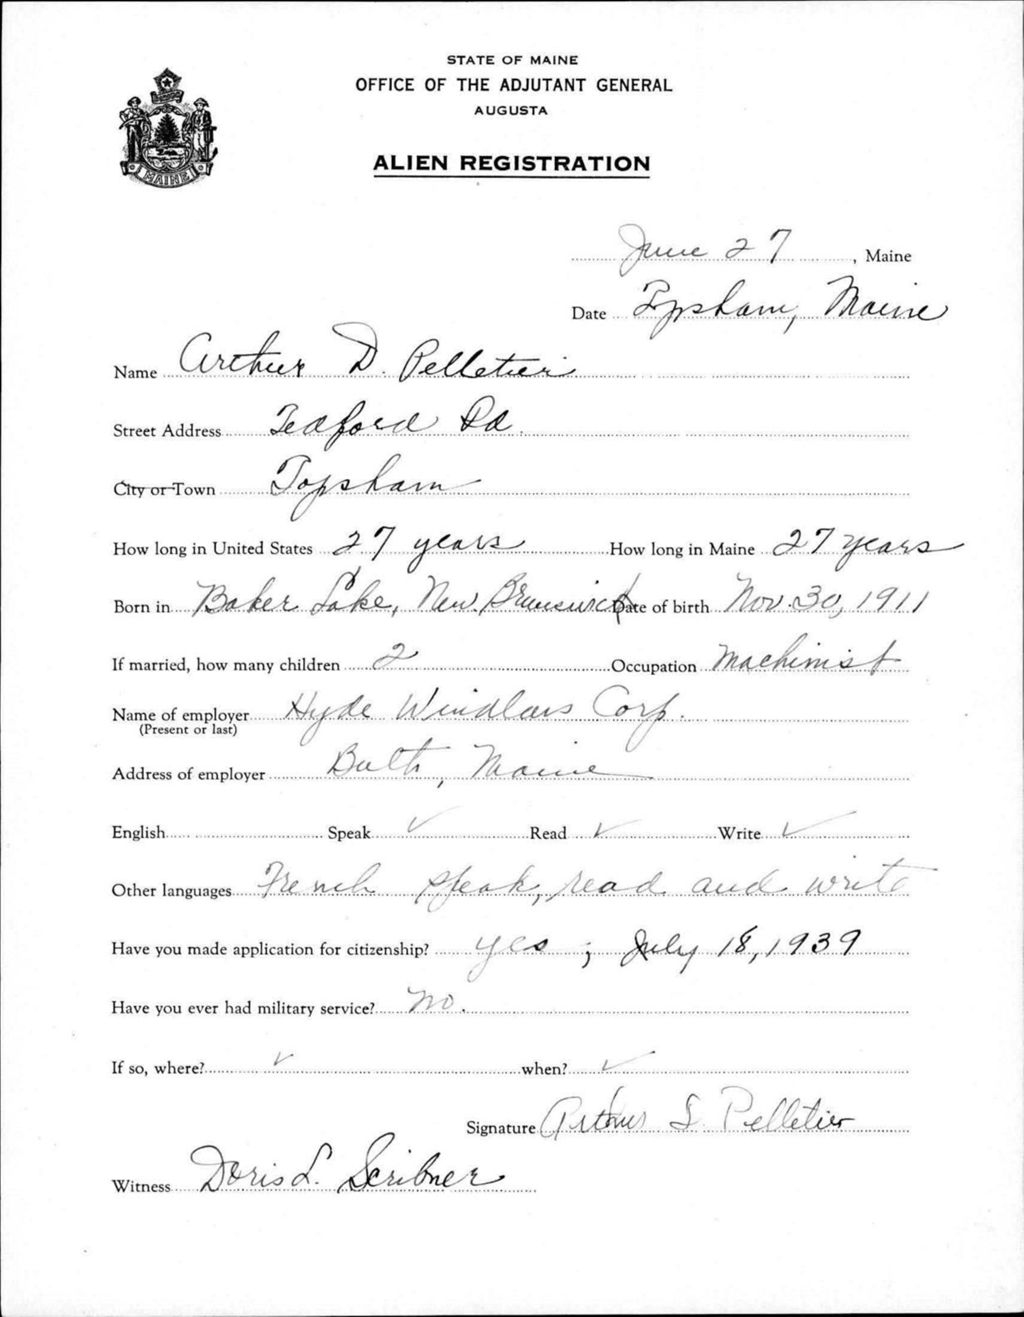 STATE OF MAINE
OFFICE OF THE ADJUTANT GENERAL
AUGUSTA
ALIEN REGISTRATION
MAINE
June 27, Maine
Date Topsham, Maine
Name Arthur D. Pelletier
Street Address Tedford Rd.
City or Town Topsham
How long in United States 27 years How long in Maine 27 years
Born in Baker Lake, New Brunswick Date of birth Nov. 30, 1911
If married, how many children 2 Occupation Machinist
Name of employer Hyde Windlass Corp.
(Present or last)
Address of employer Bath, Maine
English Speak ✓ Read ✓ Write ✓
Other languages French speak, read and write
Have you made application for citizenship? yes ; July 18, 1939
Have you ever had military service? no.
If so, where? ✓ when? ✓
Signature Arthur Pelletier
Witness Doris L. Scribner